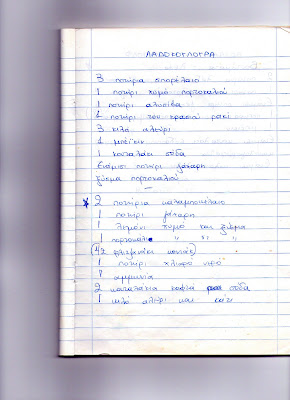 ΛΑΔΟΚΟΥΛΟΥΡΑ
3 ποτήρια σπορέλαιο
1 ποτήρι χυμό πορτοκαλιού
1 ποτήρι αλυσίβα
1 ποτήρι του κρασιού ρακί
3 κιλό αλεύρι
1 μπέϊκιν
1 κουταλάκι σόδα
ποτήρι ζάχαρη
ξύσμα πορτοκαλιού
* 2 ποτήρια καλαμποκέλαιο
1 ποτήρι ζάχαρη
1 λεμόνι χυμό και ξύσμα
1 πορτοκάλι " " "
1/2 φλιτζανάκι
1 ποτήρι χλιαρό νερό
αμμωνία
2 κουταλάκια σόδα
1 κιλό αλεύρι και κάτι